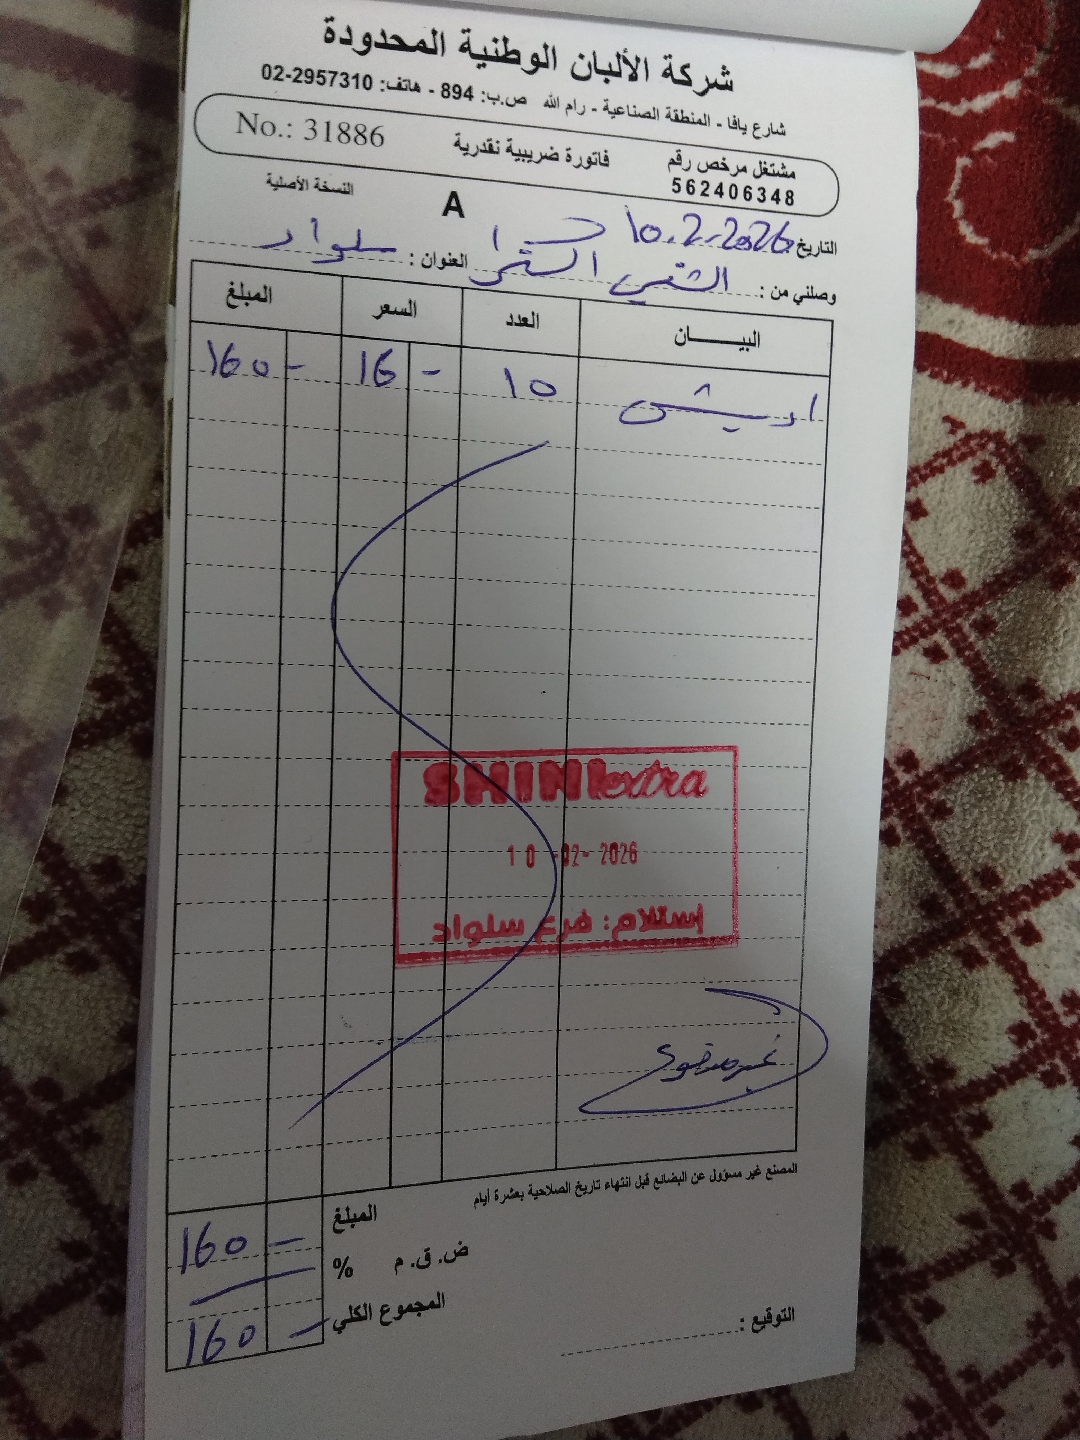 شركة الألبان الوطنية المحدودة
شارع يافا - المنطقة الصناعية - رام الله ص.ب: 894 - هاتف: 02-2957310
مشتغل مرخص رقم 562406348
فاتورة ضريبية نقدرية
No.: 31886
النسخة الأصلية
A
التاريخ 10.2.2026
وصلني من : الشني اكسترا العنوان : سلواد
البيـــان العدد السعر المبلغ
10 16 - 160 -
SHINI extra
10 -02- 2026
إستلام: فرع سلواد
غير مدفوع
المصنع غير مسؤول عن البضائع قبل انتهاء تاريخ الصلاحية بعشرة أيام
المبلغ 160 -
ض. ق. م %
المجموع الكلي 160 -
التوقيع :